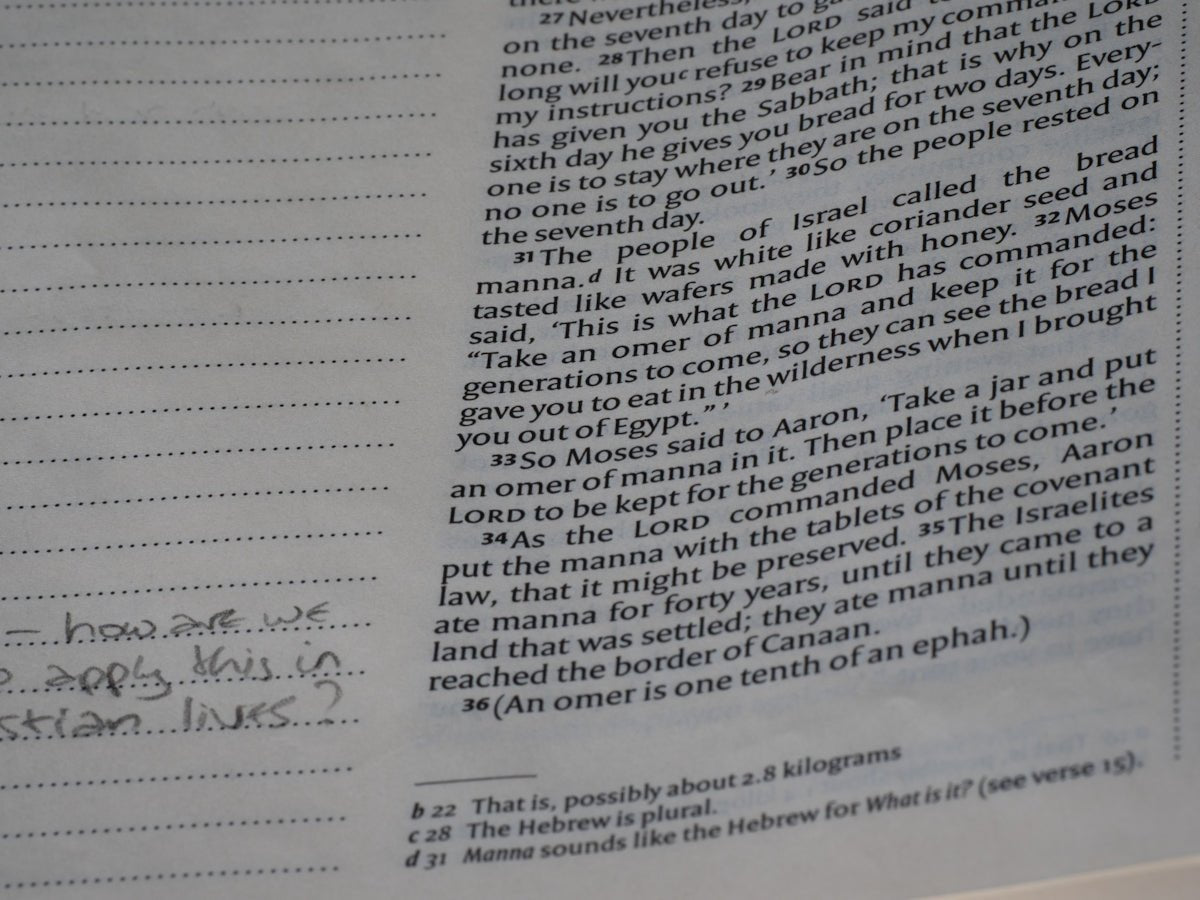 27 Nevertheless,
on the seventh day to
none. 28 Then the LORD said
long will you c refuse to keep my
my instructions? 29 Bear in mind that the LORD
has given you the Sabbath; that is why on the
sixth day he gives you bread for two days. Every-
one is to stay where they are on the seventh day;
no one is to go out.’ 30 So the people rested on
the seventh day.
31 The people of Israel called the bread
manna.d It was white like coriander seed and
tasted like wafers made with honey. 32 Moses
said, ‘This is what the LORD has commanded:
“Take an omer of manna and keep it for the
generations to come, so they can see the bread I
gave you to eat in the wilderness when I brought
you out of Egypt.” ’
33 So Moses said to Aaron, ‘Take a jar and put
an omer of manna in it. Then place it before the
LORD to be kept for the generations to come.’
34 As the LORD commanded Moses, Aaron
put the manna with the tablets of the covenant
law, that it might be preserved. 35 The Israelites
ate manna for forty years, until they came to a
land that was settled; they ate manna until they
reached the border of Canaan.
36 (An omer is one tenth of an ephah.)
b 22 That is, possibly about 2.8 kilograms
c 28 The Hebrew is plural.
d 31 Manna sounds like the Hebrew for What is it? (see verse 15).
– how are we
apply this in
stian lives?